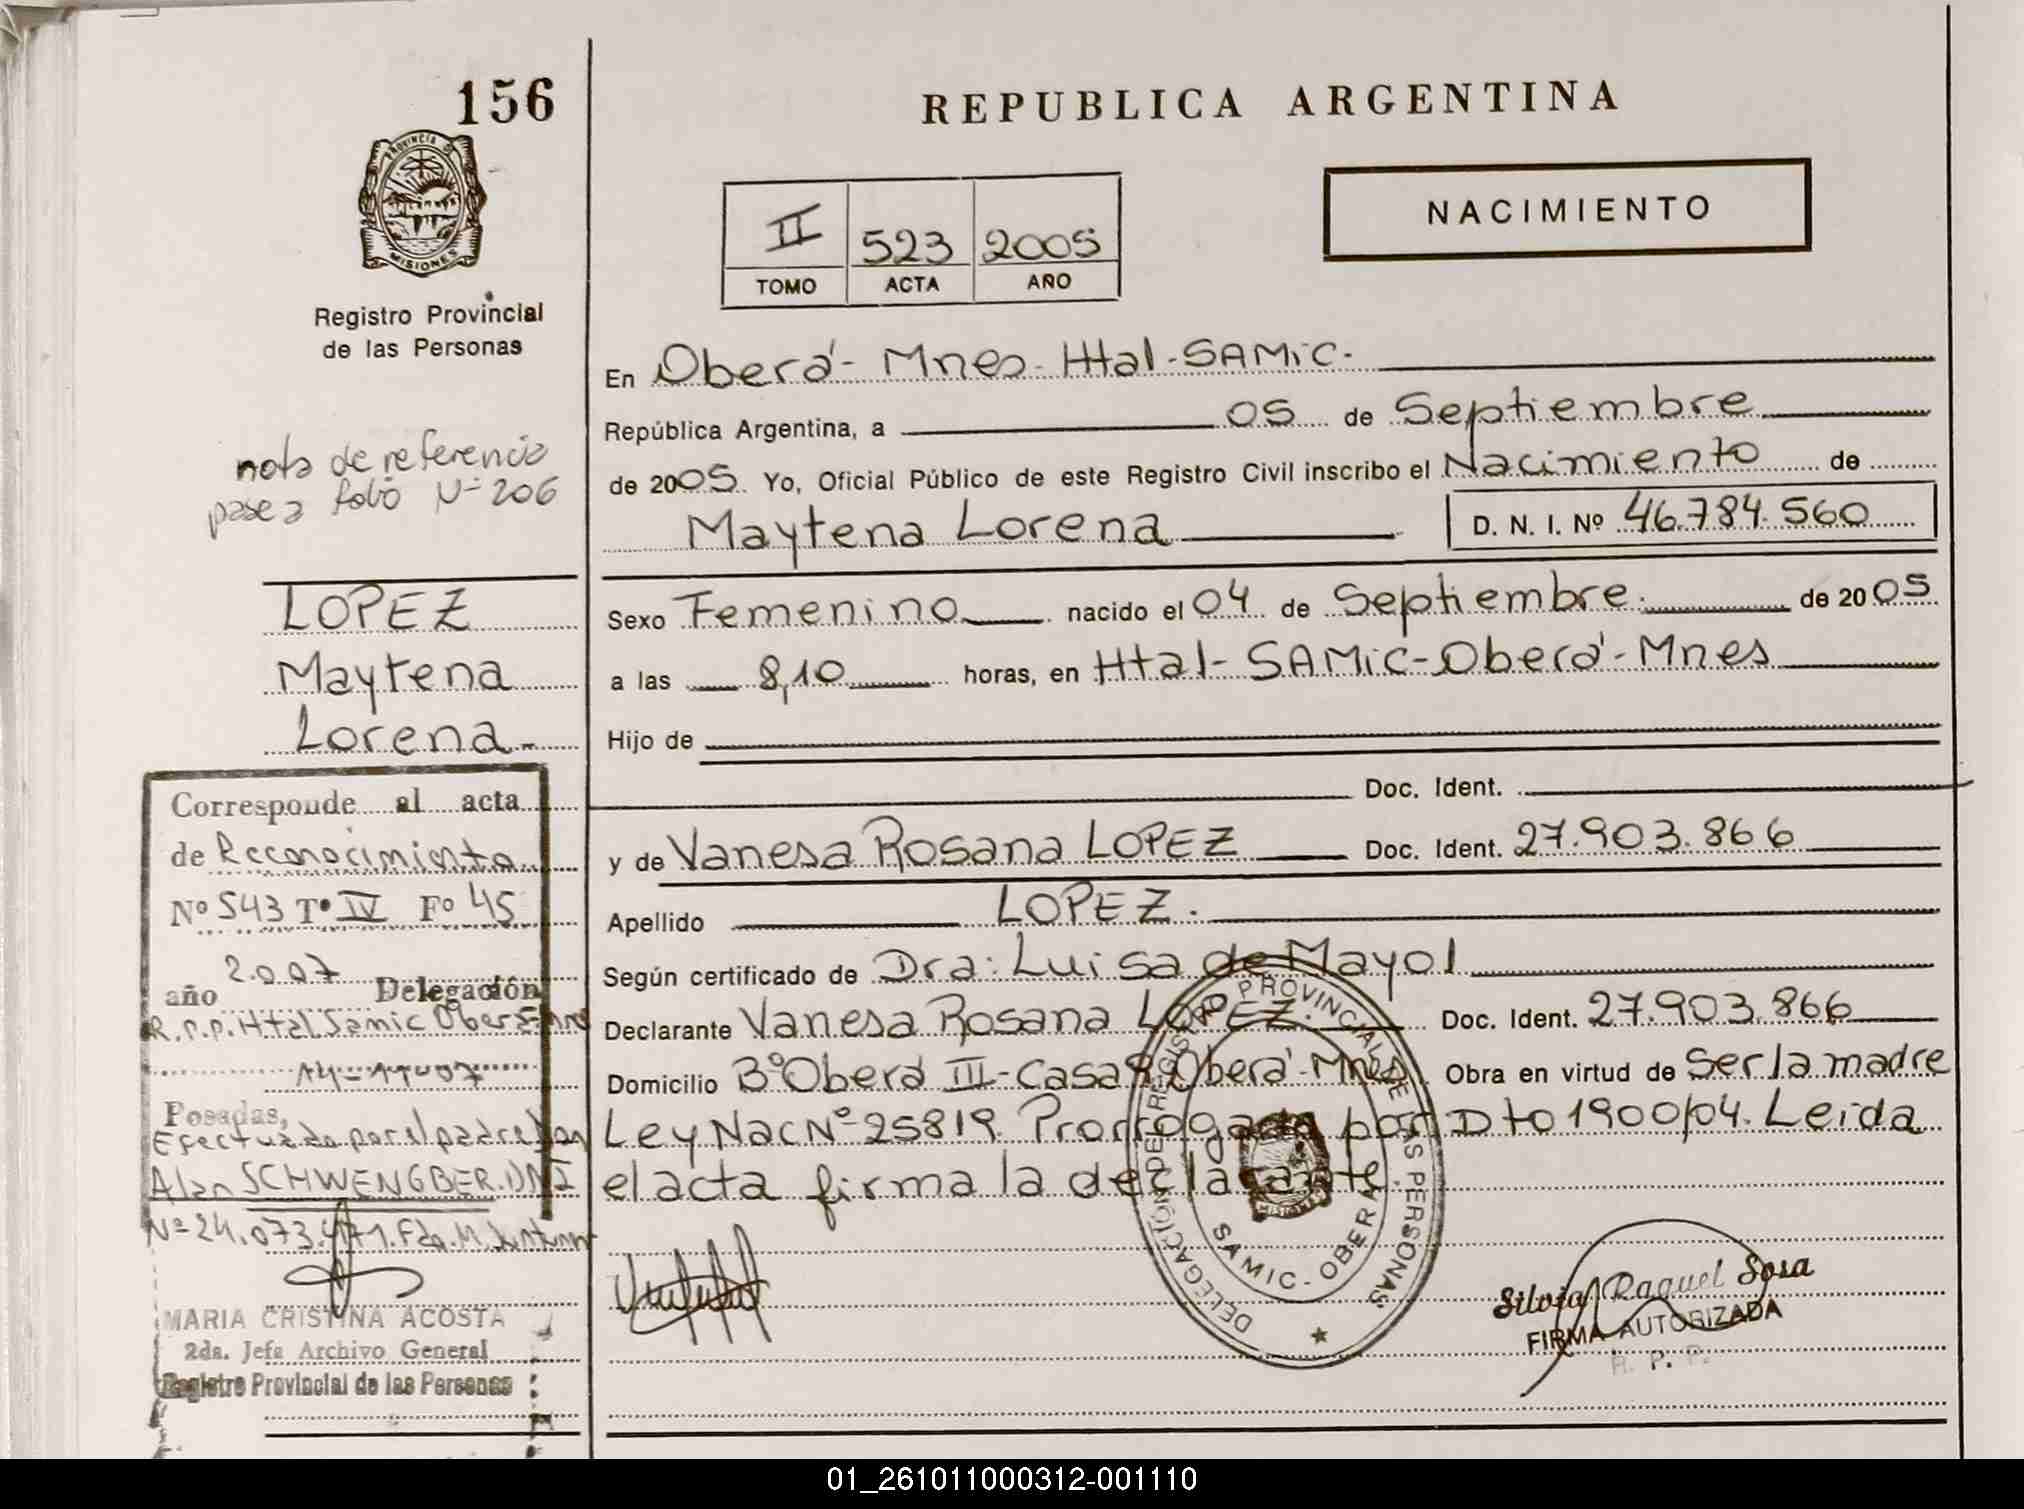 156
PROVINCIA DE
MISIONES
Registro Provincial
de las Personas
nota de referencia
pase a folio Nº 206
LOPEZ
Maytena
Lorena
Corresponde al acta
de Reconocimiento
Nº 543 Tº IV Fº 45
año 2.007 Delegación
R.P.P. Htal Samic Oberá
14-11-07
Posadas,
Efectuado por el padre
Alan SCHWENGBER. DNI
Nº 24.073.471. Fdo. M.
MARIA CRISTINA ACOSTA
2da. Jefa Archivo General
Registro Provincial de las Personas
REPUBLICA ARGENTINA
II 523 2005
TOMO ACTA AÑO
NACIMIENTO
En Oberá - Mnes - Htal - SAMiC.
República Argentina, a 05 de Septiembre
de 2005 Yo, Oficial Público de este Registro Civil inscribo el Nacimiento de
Maytena Lorena D. N. I. Nº 46.784.560
Sexo Femenino nacido el 04 de Septiembre de 2005
a las 8,10 horas, en Htal - SAMiC - Oberá - Mnes
Hijo de
Doc. Ident.
y de Vanesa Rosana LOPEZ Doc. Ident. 27.903.866
Apellido LOPEZ.
Según certificado de Dra: Luisa de Mayol
Declarante Vanesa Rosana LOPEZ. Doc. Ident. 27.903.866
Domicilio Bº Oberá III - Casa 9 Oberá - Mnes Obra en virtud de Ser la madre
Ley Nac Nº 25819. Prorrogada por Dto 1900/04. Leida
el acta firma la declarante.
DELEGACIÓN DEL REGISTRO PROVINCIAL DE LAS PERSONAS
SAMIC - OBERA
MISIONES
Silvia Raquel Sosa
FIRMA AUTORIZADA
R. P. P.
01_261011000312-001110